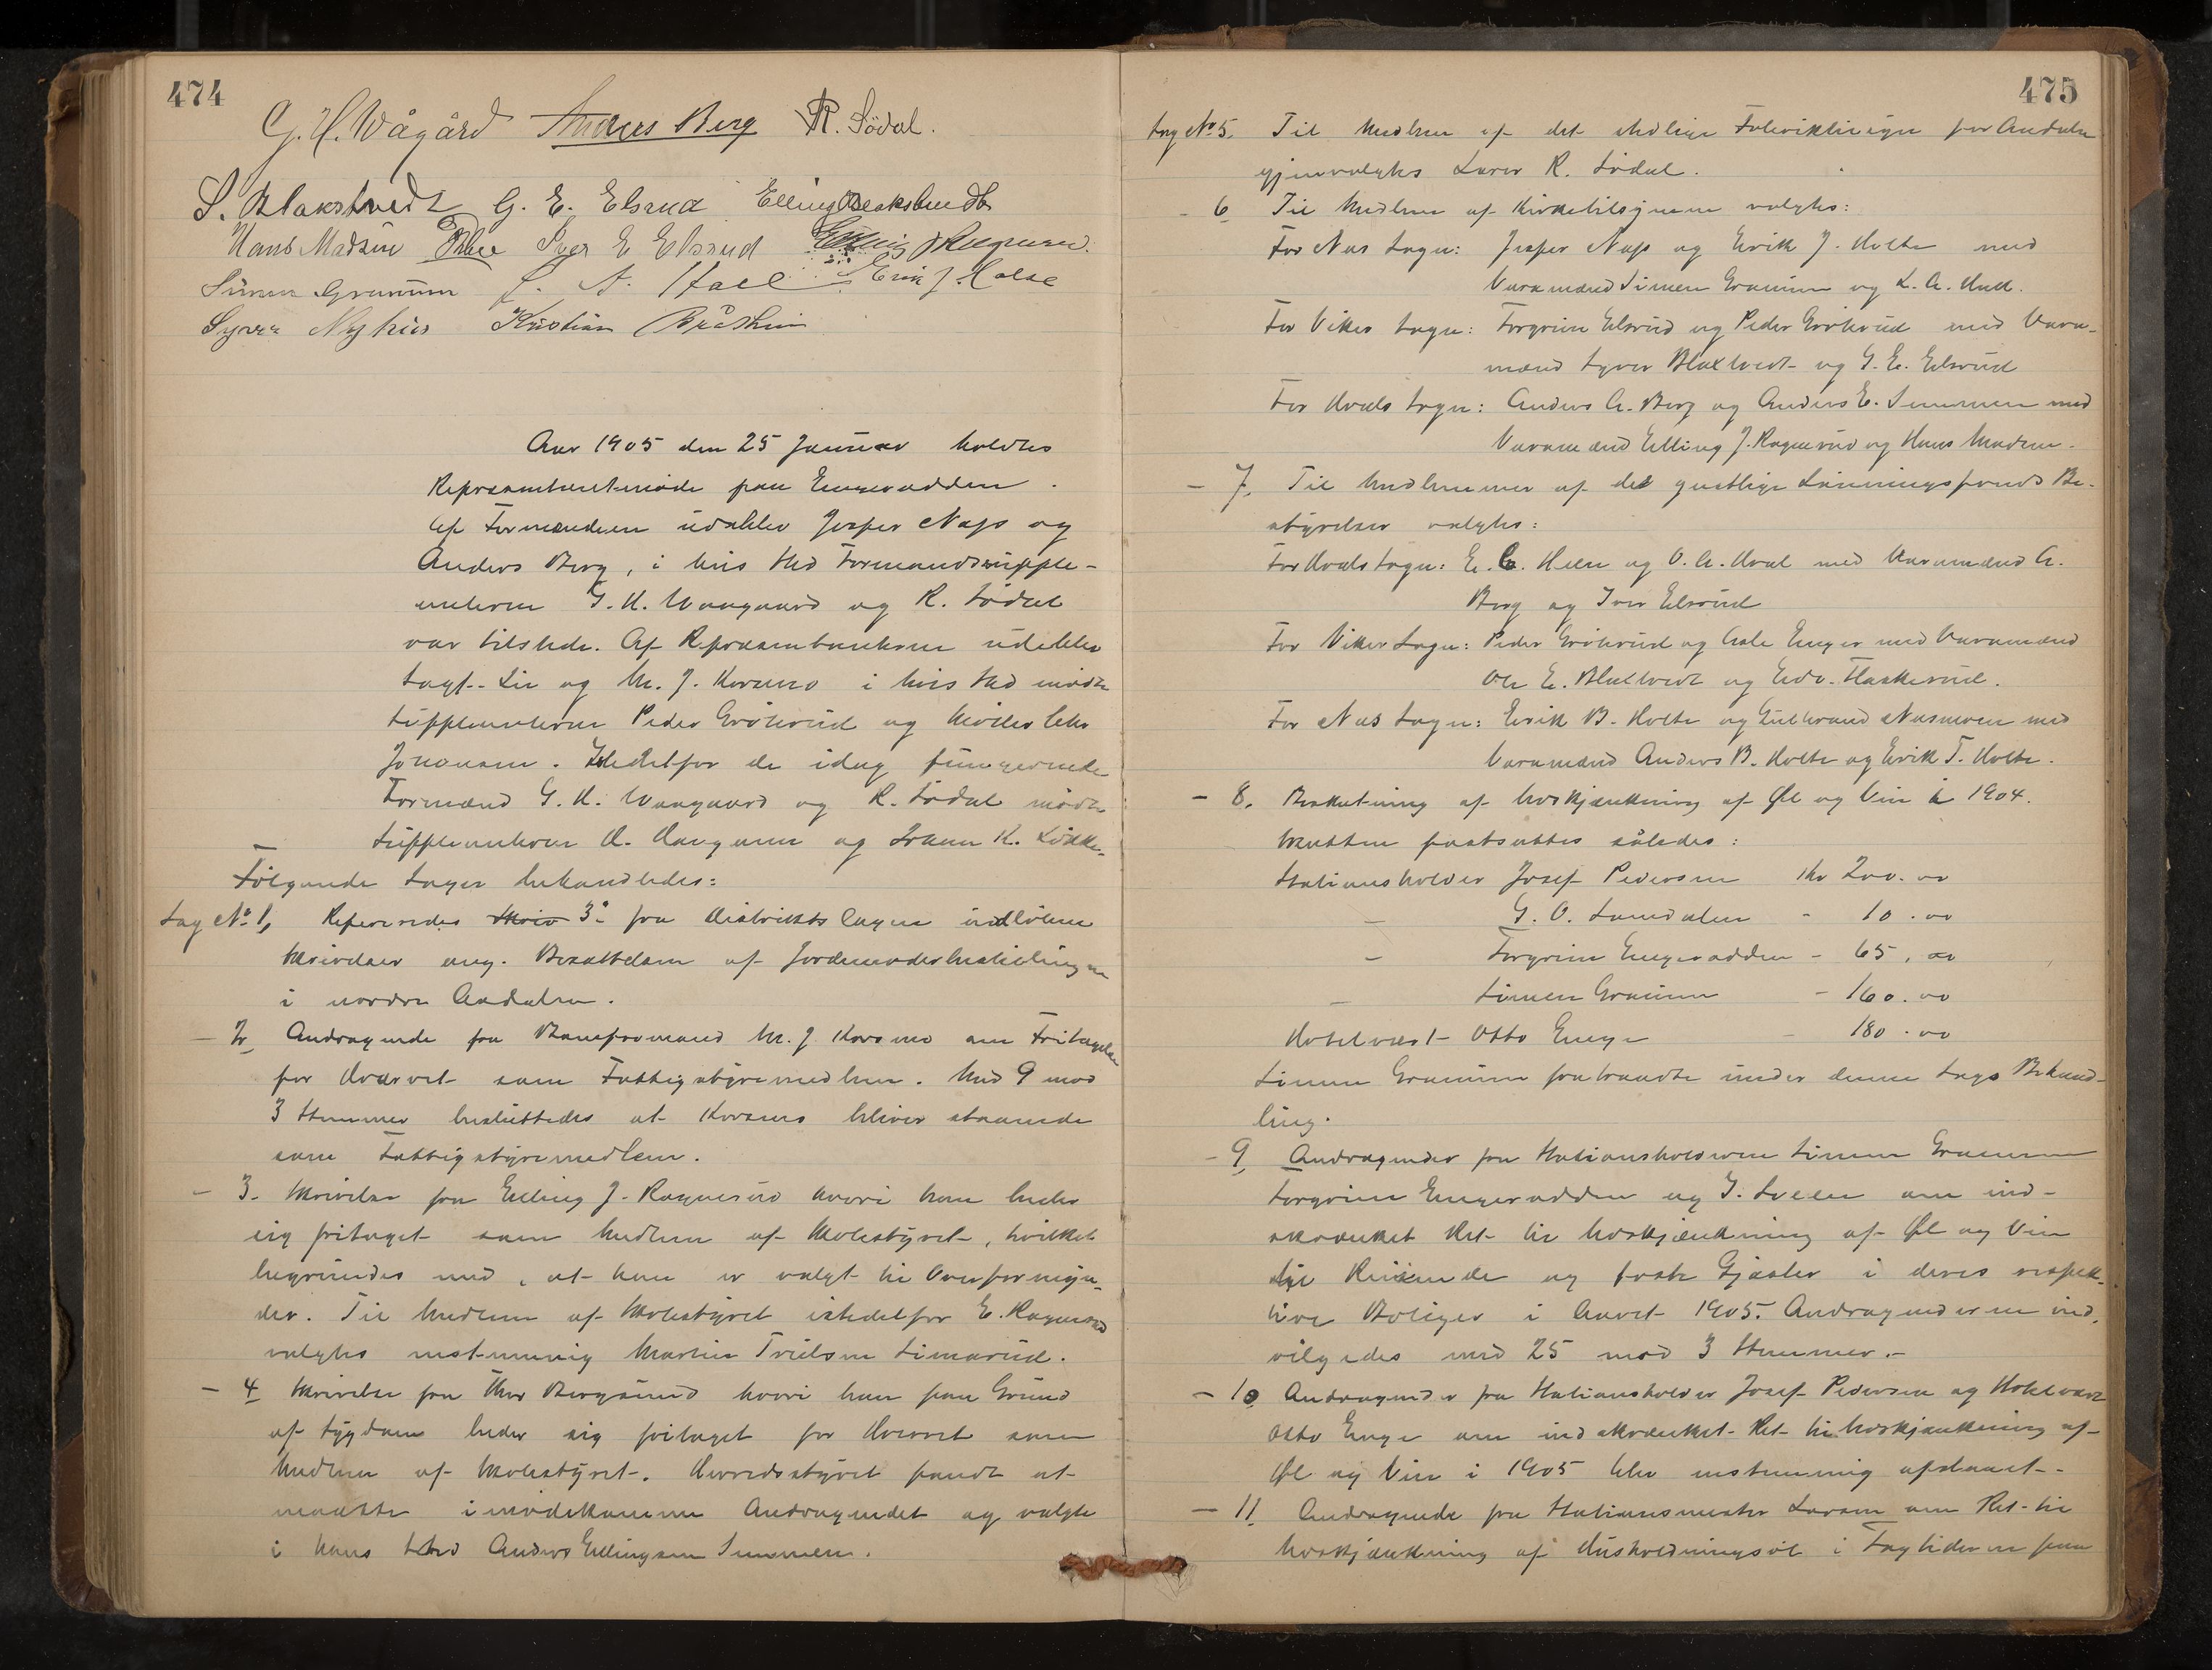 474
G. H. Wågård Anders Berg R. Sødal.
S. Blakstvedt G. E. Elsrud Elling
Hans Madsen Iver E Elsrud
Simen Granum Erik J. Holte
Kristian
Aar 1905 den 25 Januar holdtes
Repræsentantmøde paa Engerodden.
Af Formændene udeblev Jesper Næss og
Anders Berg, i hvis sted Formandssupple-
anterne G. H. Waagaard og R. Sødal
var tilstede. Af Repræsentanterne udeblev
Sagf. Lie og M. J. Korsmo i hvis sted mødte
Suppleanterne Peder Grøterud og
Johansen. Istedetfor de idag fungerende
Formænd G. H. Waagaard og R. Sødal mødte
Suppleanterne og Johan K.
Følgende Sager behandledes:
Sag No 1, Refereredes Skriv 3de fra Distriktslægen indløbne
Skrivelser ang. Besættelsen af Jordemoderbestillingen
i nordre Aadalen.
- 2, Andragende fra Baneformand M. J Korsmo om Fritagelse
for Hvervet som Fattigstyremedlem. Med 9 mod
3 Stemmer besluttedes at Korsmo bliver staaende
som Fattigstyremedlem.
- 3. Skrivelse fra Elling J. Ragnesrud hvori han beder
sig fritaget som Medlem af Skolestyret, hvilket
begrundes med, at han er valgt til Overformyn-
der. Til Medlem af Skolestyret istedetfor E. Ragnesrud
valgtes enstemmig Martin Simarud.
- 4 Skrivelse fra Thor Bergsund hvori han paa Grund
af Sygdom beder sig fritaget for Hvervet som
Medlem af Skolestyret. Herredsstyret fandt at
maatte imødekomme Andragendet og valgte
i hans sted Anders Ellingsen Semmen.
475
Sag No 5. Til Medlem af det stedlige Tolovistilsyn for Aadalen
gjenvalgtes Lærer R. Sødal.
- 6 Til Medlem af Kirketilsynene valgtes:
For Næs Sogn: Jesper Næss og Erik J. Holte med
Varamænd Simen Granum og L. A. Hval.
For Viker Sogn: Torgrim Elsrud og Peder Grøterud med Vara-
mænd Syver Blaxtvedt og G. E. Elsrud
For Hvals Sogn: Anders A. Berg og Anders E. Semmen med
Varamænd Elling J. Ragnesrud og Hans Madsen.
- 7, Til Medlemmer af det gjestlige Lønningsfonds Be-
styrelser valgtes:
For Hvals Sogn: E. E. Heen og O. A. Hval med Varamænd A.
Berg og Iver Elsrud
For Viker Sogn: Peder Grøterud og Asle Enger med Varamænd
Ole E. Blakstvedt og Edv. Flaskerud.
For Næs Sogn: Erik B. Holte og Gulbrand Næsmoen med
Varamænd Anders B. Holte og Erik T. Holte.
- 8, Beskatning af Udskjænkning af Øl og Vin i 1904.
Skatten fastsattes således:
Stationsholder Josef Pedersen Kr 200.00
- G. O. Somdalen - 10.00
- Torgrim Engerodden - 65,00
- Simen Granum - 160.00
Hotelvært Otto Enger - 180.00
Simen Granum fratraadte under denne Sags Behand-
ling.
- 9, Andragender fra Stationsholderne Simen Granum
Torgrim Engerodden og G. Sveen om ind-
skrænket Ret til Udskjænkning af Øl og Vin
til Reisende og faste Gjæster i deres respek-
tive Boliger i Aaret 1905. Andragenderne ind-
vilgedes med 25 mod 3 Stemmer.-
- 10 Andragender fra Stationsholder Josef Pedersen og Hotelvært
Otto Enger om indskrænket Ret til Udskjænkning af
Øl og Vin i 1905 blev enstemmig afslaaet.-
- 11 Andragende fra Stationsmester Larsen om Ret til
Udskjænkning af Husholdningsøl i Togtiderne paa